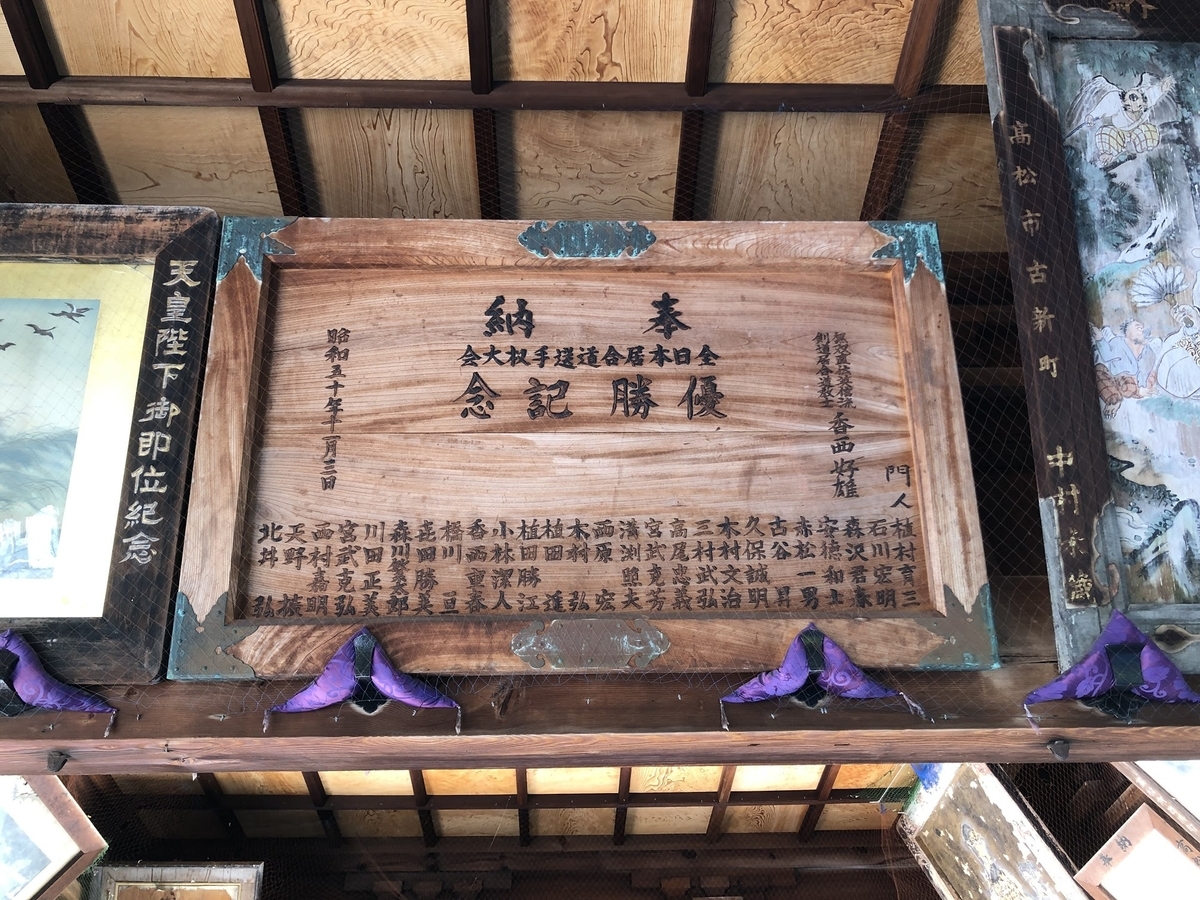 奉納
全日本居合道選手权大会
優勝記念
香西好雄
門人
植村育三
石川宏明
森沢君春
安徳和上
赤松一男
古谷昇
久保誠明
木村文治
三村武弘
高尾忠義
宮武克芳
溝渕塱夫
西原宏
木村弘
植田蓬
植田勝江
小林潔人
香西重春
橋川亘
㐂田勝美
森川繁太郎
川田正美
宮武克弘
西村嘉明
天野榚
北井弘
天皇陛下御即位紀念
高松市古新町
中村